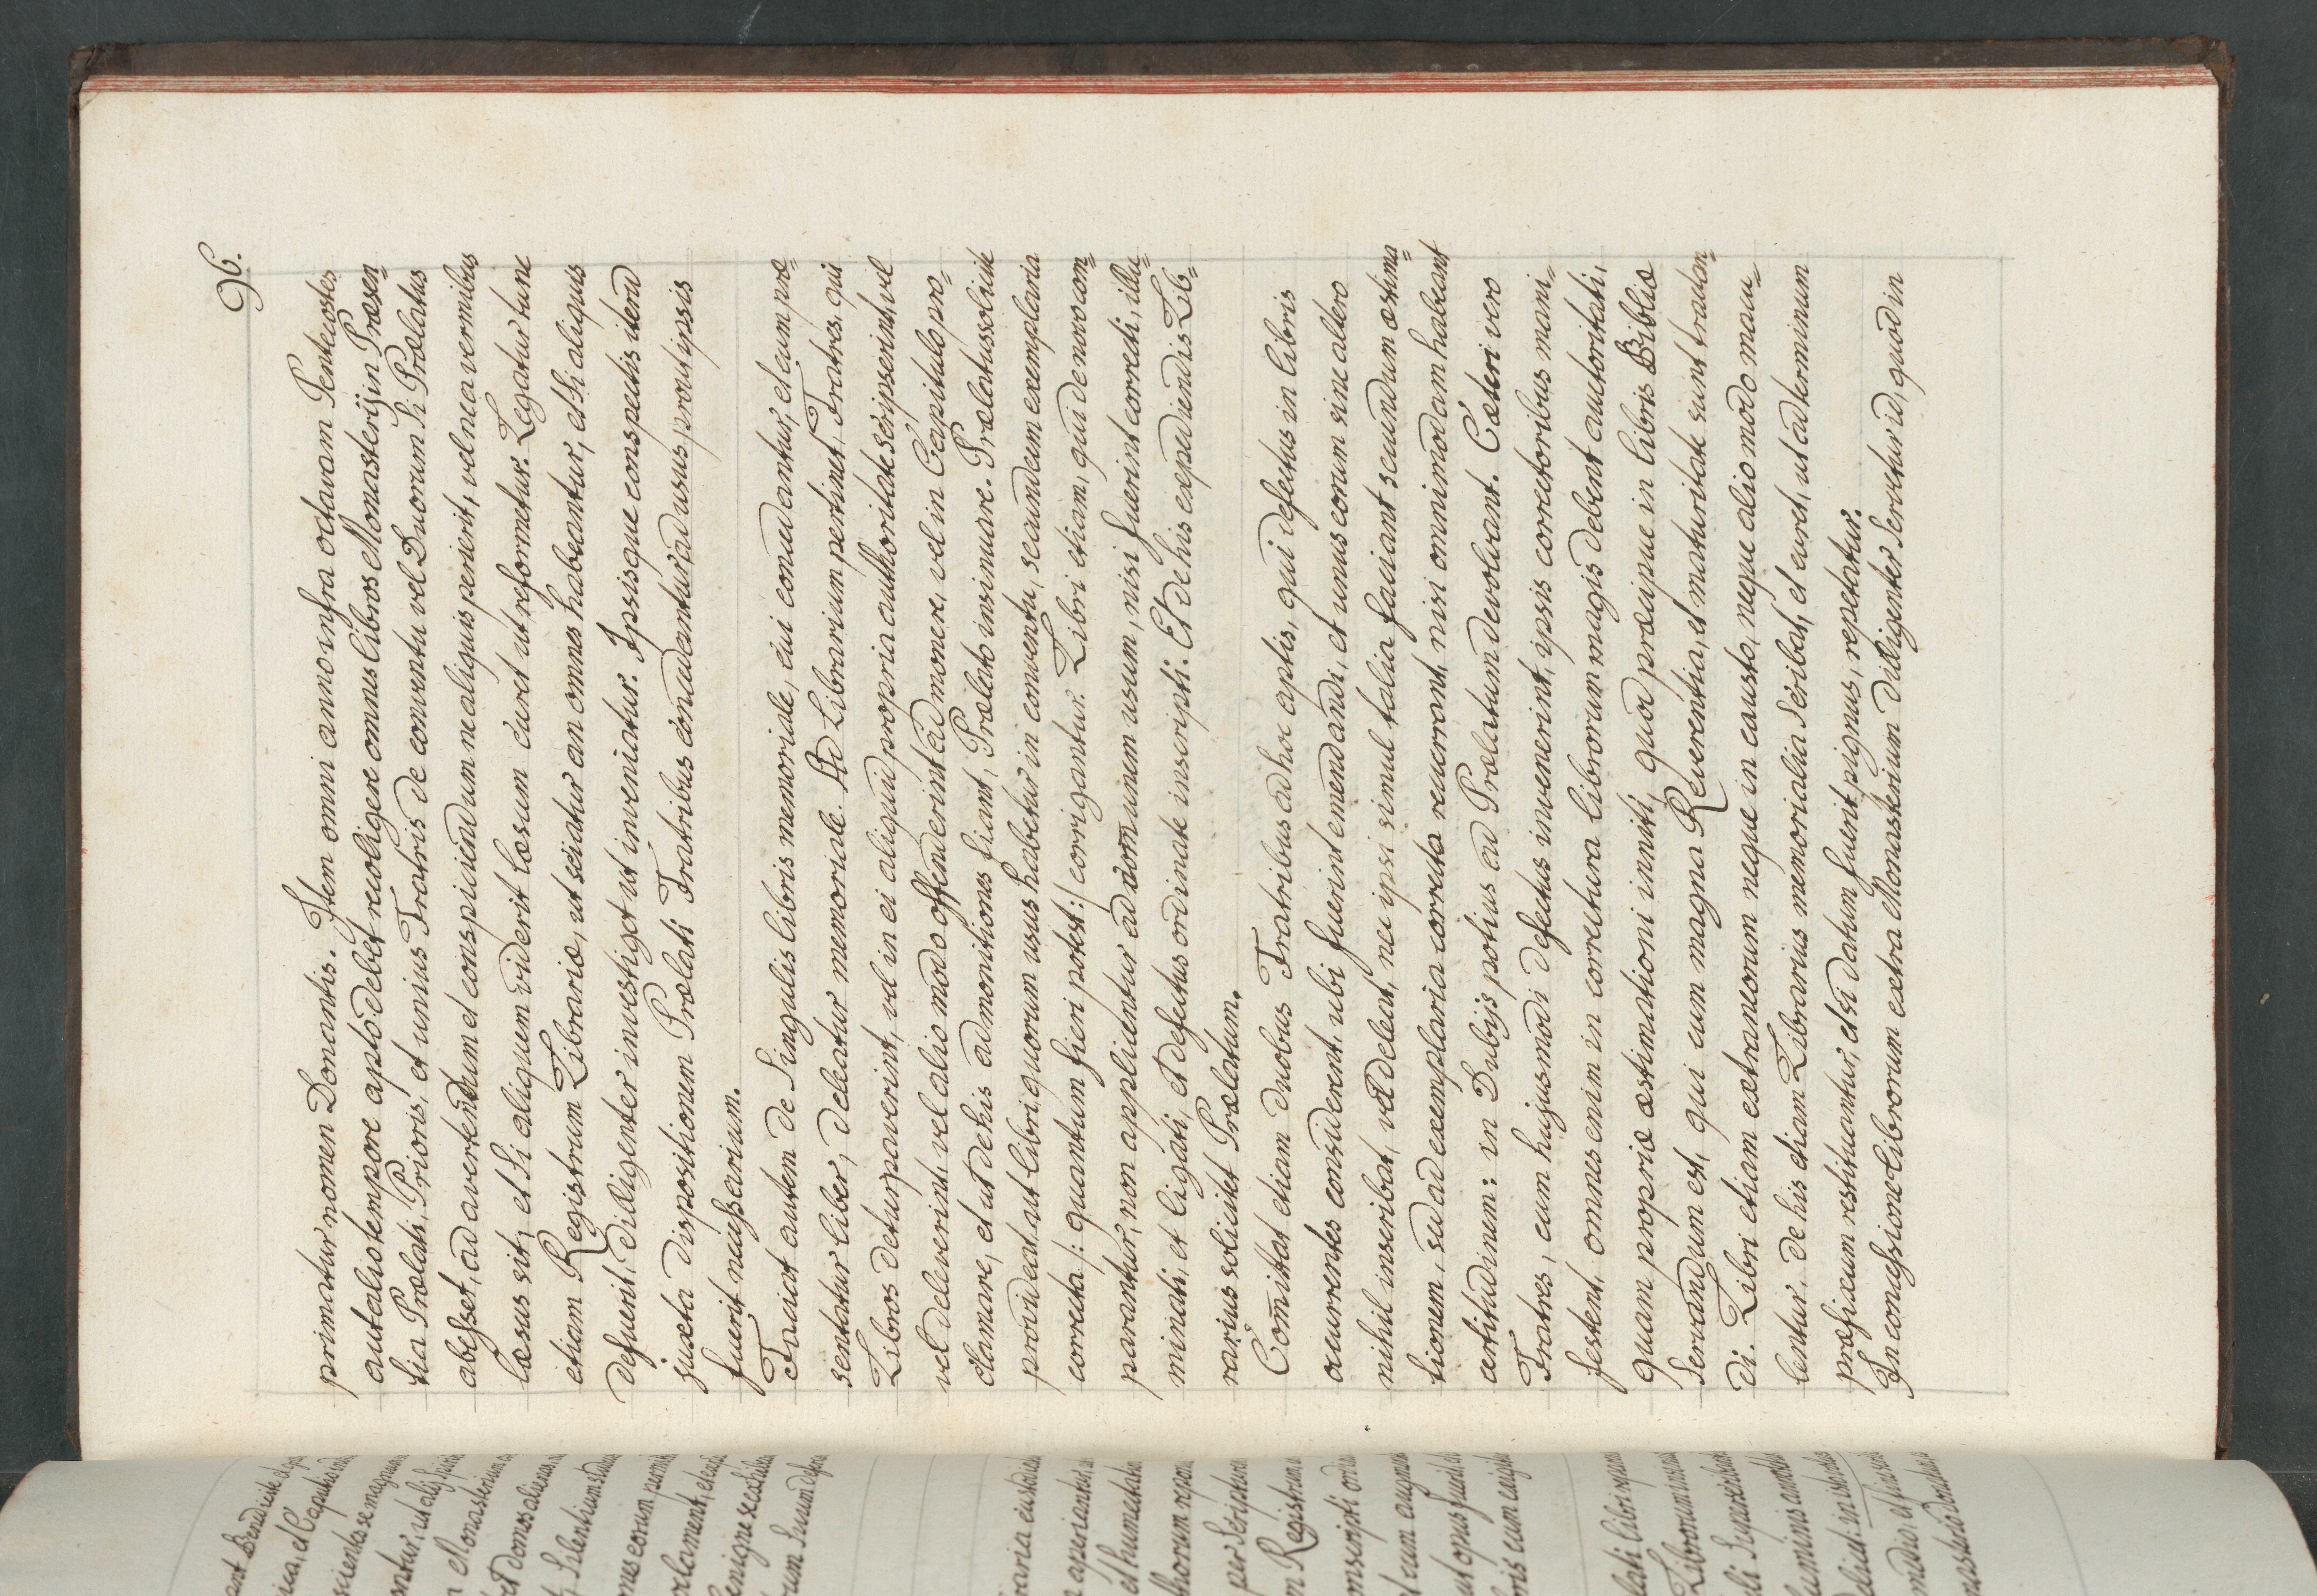 96.
primatur nomen Donantis. Item omni anno infra octavam Pentecostes
aut alio tempore apto debet recoligere omnes libros Monasterij in Præsen=
tia Prælati, Prioris, et unius Fratris de conventu vel Duorum si Prælatus
abesset, ad avertendum et conspiciendum ne aliquis perierit, vel ne a vermibus
læsus sit, et si aliquem viderit læsum curet ut reformetur. Legatur tunc
etiam Registrum Librariæ, ut sciatur an omnes habeantur, et si aliquis
defuerit, diligenter investiget ut inveniatur. Ipsisque conspectis iterū
juxta dispositionem Prælati Fratribus concedantur ad usus, prout ipsis
fuerit necessarium.
Faciat autem de singulis libris memoriale, cui concedantur, et cum præ=
sentatur liber, deleatur memoriale. Ad Librarium pertinet, Fratres, qui
Libros deturpaverint, vel in ei aliquid propria authoritate scripserint, vel
vel deleverint, vel alio modo offenderint admonere, vel in Capitulo pro=
clamare, et ut de his admonitiones fiant, Prælato insinuare. Prælatus solicite
provideat, ut libri, quorum usus habetur in conventu, secundum exemplaria
correcta /: quantum fieri potest :/ corrigantur. Libri etiam, qui de novo com=
parantur, non applicentur ad com̄unem usum, nisi fuerint correcti, illu=
minati, et ligati, et defectus ordinate inscripti. Et de his expediendis Lib=
rarius solicitet Prælatum.
Com̄ittat etiam duobus Fratribus ad hoc aptis, qui defectus in libris
occurrentes considerent, ubi fuerint emendandi, et unus eorum sine altero
nihil inscribat, vel deleat, nec ipsi simul talia faciant secundum æstima=
tionem, sed ad exemplaria correcta recurrant, nisi omnimodam habeant
certitudinem: in Dubijs potius ad Prælatum devolvant. Cæteri vero
Fratres, cum hujusmodi defectus invenerint, ipsis correctoribus mani=
festent, omnes enim in correctura librorum magis debent autoritati,
quam propriæ æstimationi inniti, quod præcipue in libris Bibliæ
servandum est, qui cum magna Reverentia, et maturitate sunt tractan=
di. Libri etiam extraneorum neque in causto, neque alio modo macu=
lentur, de his etiam Librarius memorialia scribat, et curet, ut ad terminum
præfixum restituantur, et si datum fuerit pignus, repetatur.
In concessione librorum extra Monasterium diligenter servetur id, quod in